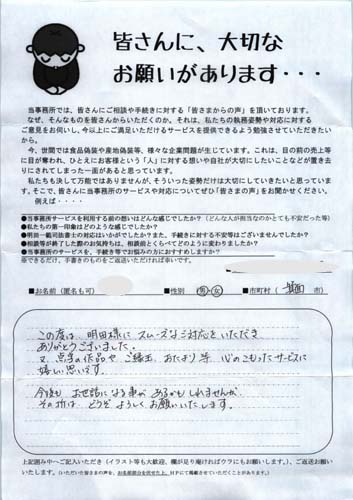 皆さんに、大切な
お願いがあります・・・
当事務所では、皆さんにご相談や手続きに対する「皆さまからの声」を頂いております。
なぜ、そんなものを皆さんからいただくのか。それは、私たちの執務姿勢や対応に対する
ご意見をお伺いし、今以上にご満足いただけるサービスを提供できるよう勉強させていただきたい
から。
今、世間では食品偽装や産地偽装等、様々な企業問題が生じています。これは、目の前の売上等
に目が奪われ、ひとえにお客様という「人」に対する想いや自社が大切にしたいことなどが置き去
りにされてしまった一面があると思っています。
私たちも決して万能ではありませんが、そういった姿勢だけは大切にしていきたいと思っていま
す。そこで、皆さんに当事務所のサービスや対応についてぜひ「皆さまの声」をお聞かせください。
例えば・・・・
●当事務所サービスを利用する前の想いはどんな感じでしたか?(どんな人が担当なのかとても不安だった等)
●私たちの第一印象はどのような感じでしたか?
●明田一範司法書士の対応はいかがでしたか?また、手続きに対する不安等はございませんでしたか?
●相談等が終了した際のお気持ちは、相談前とくらべてどのように変わりましたか?
●当事務所のサービスを、手続き等でお悩みの方におすすめしますか?
等できるだけ、手書きのものをいただければ幸いです。
■お名前(匿名も可) ■性別 男・女 ■市町村(箕面 市)
この度は、明田様に スムーズなご対応をいただき
ありがとうございました。
又、点字の作品や ご縁玉、おたより 等、心のこもったサービスに
嬉しい思いです。
今後も お世話になる事が あるかもしれませんが、
その折は、どうぞ よろしく お願いいたします。
上記囲み中へご記入いただき(イラスト等も大歓迎、欄が足り庵ければウラにもお願いします。)、ご返送お願い
いたします。(いただいた皆さまの声を、お名前部分を伏せた上、HPにて掲載させていただくことがあります。)